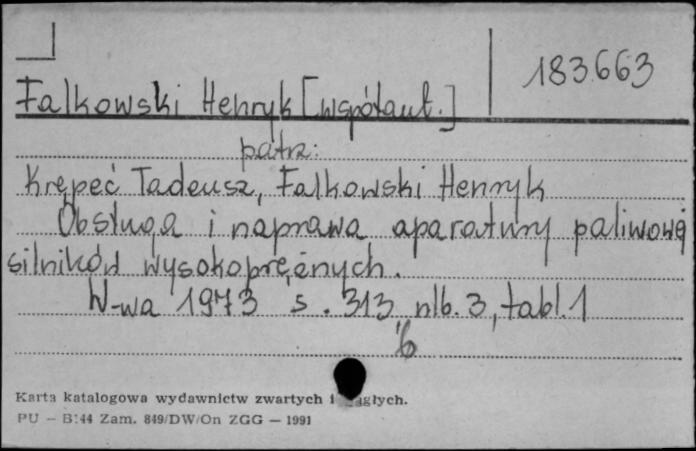 183663
Falkowski Henryk [współaut.]
patrz:
Krępeć Tadeusz, Falkowski Henryk
Obsługa i naprawa aparatury paliwowej
silników wysokoprężnych.
W-wa 1973 s. 313 nlb. 3, tabl. 1
b
Karta katalogowa wydawnictw zwartych i
PU – B:44 Zam. 849/DW/On ZGG — 1991